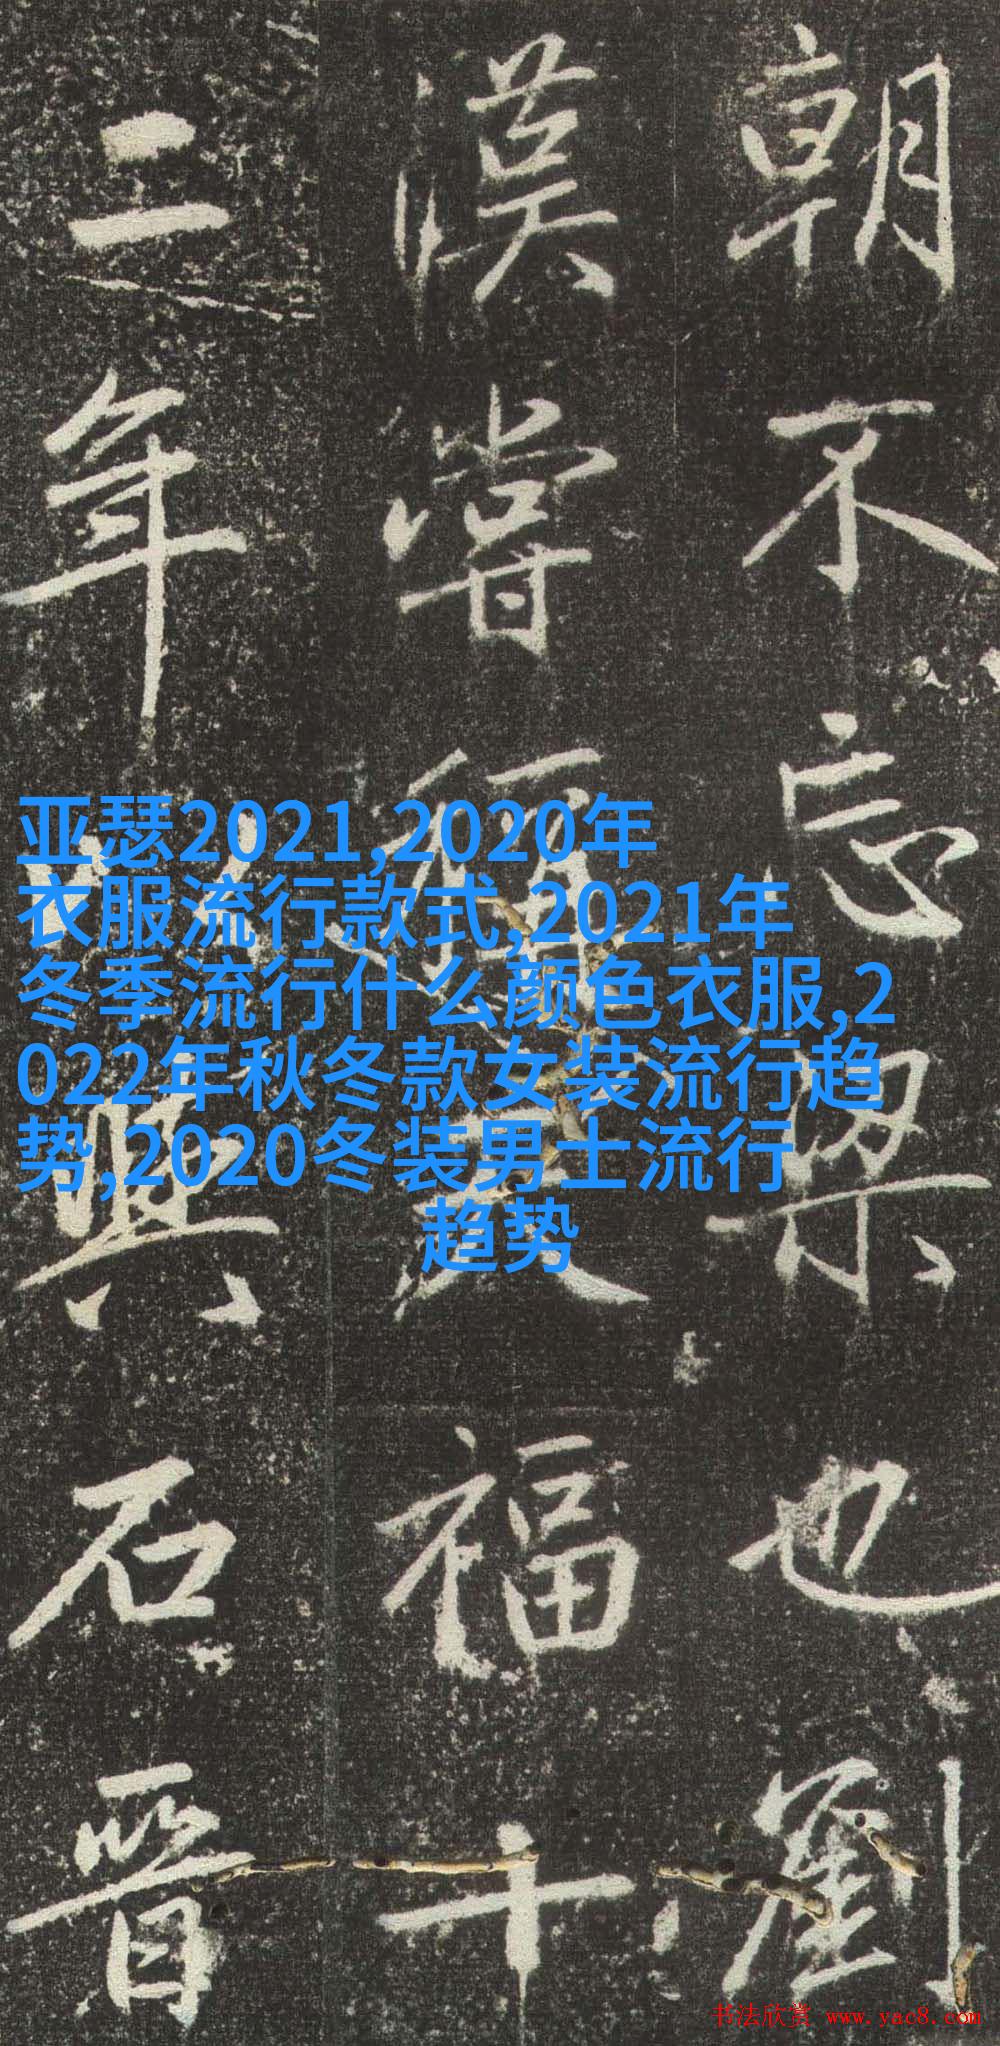 朝不忘也劉
漢嘗福十
二年興石晉
亚瑟2021,2020年
衣服流行款式,2021年
冬季流行什么颜色衣服,2
022年秋冬款女装流行趋
势,2020冬装男士流行
趋势
书法欣赏 www.yac8.com